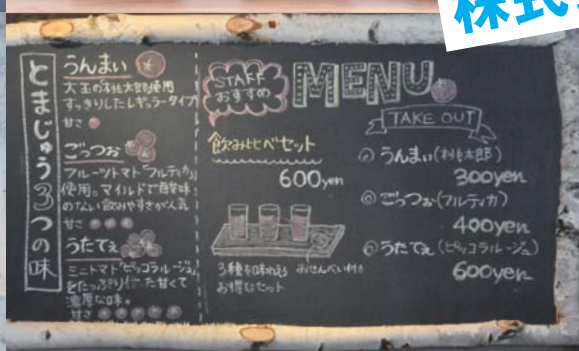 株式
とまじゅう3つの味
うんまい
大玉の桃太郎使用
すっきりしたレギュラータイプ
甘さ
ごっつぉ
フルーツトマト「フルティカ」
使用。マイルドで酸味
のない飲みやすさが人気
甘さ
うたてぇ
ミニトマト「ピッコラルージュ」
をたっぷり使った甘くて
濃厚な味。
甘さ
STAFF
おすすめ
MENU
飲み比べセット
600yen
3種を味わえる おせんべい付き
お得なセット
TAKE OUT
うんまい(桃太郎)
300yen
ごっつぉ(フルティカ)
400yen
うたてぇ(ピッコラルージュ)
600yen